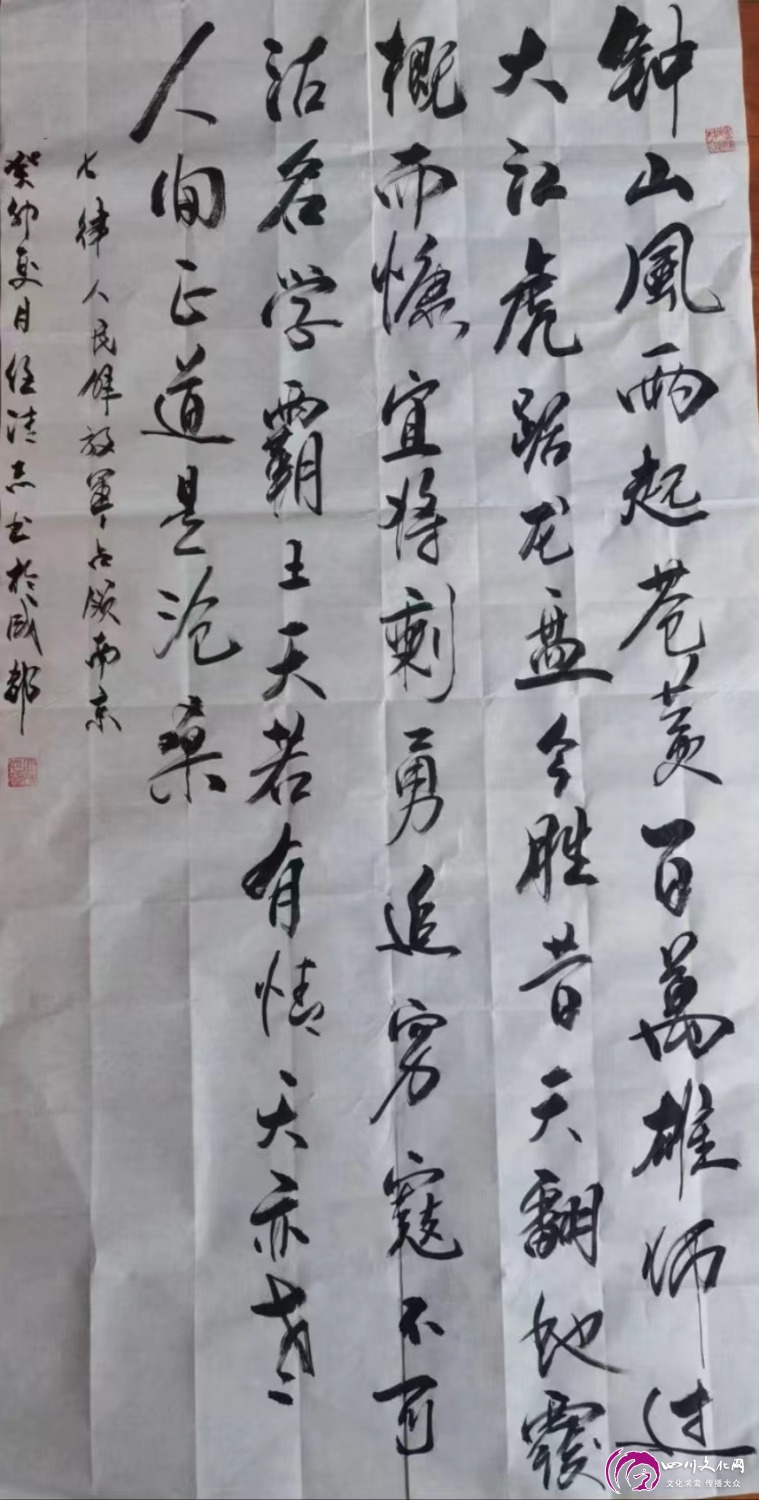 钟山風雨起苍黄百萬雄师过
大江虎踞龙盘今胜昔天翻地覆
概而慷宜将剩勇追穷寇不可
沽名学霸王天若有情天亦老
人间正道是沧桑
七律人民解放军占领南京
癸卯夏月任清志书於成都
四川文化网
文化求索 传播大众